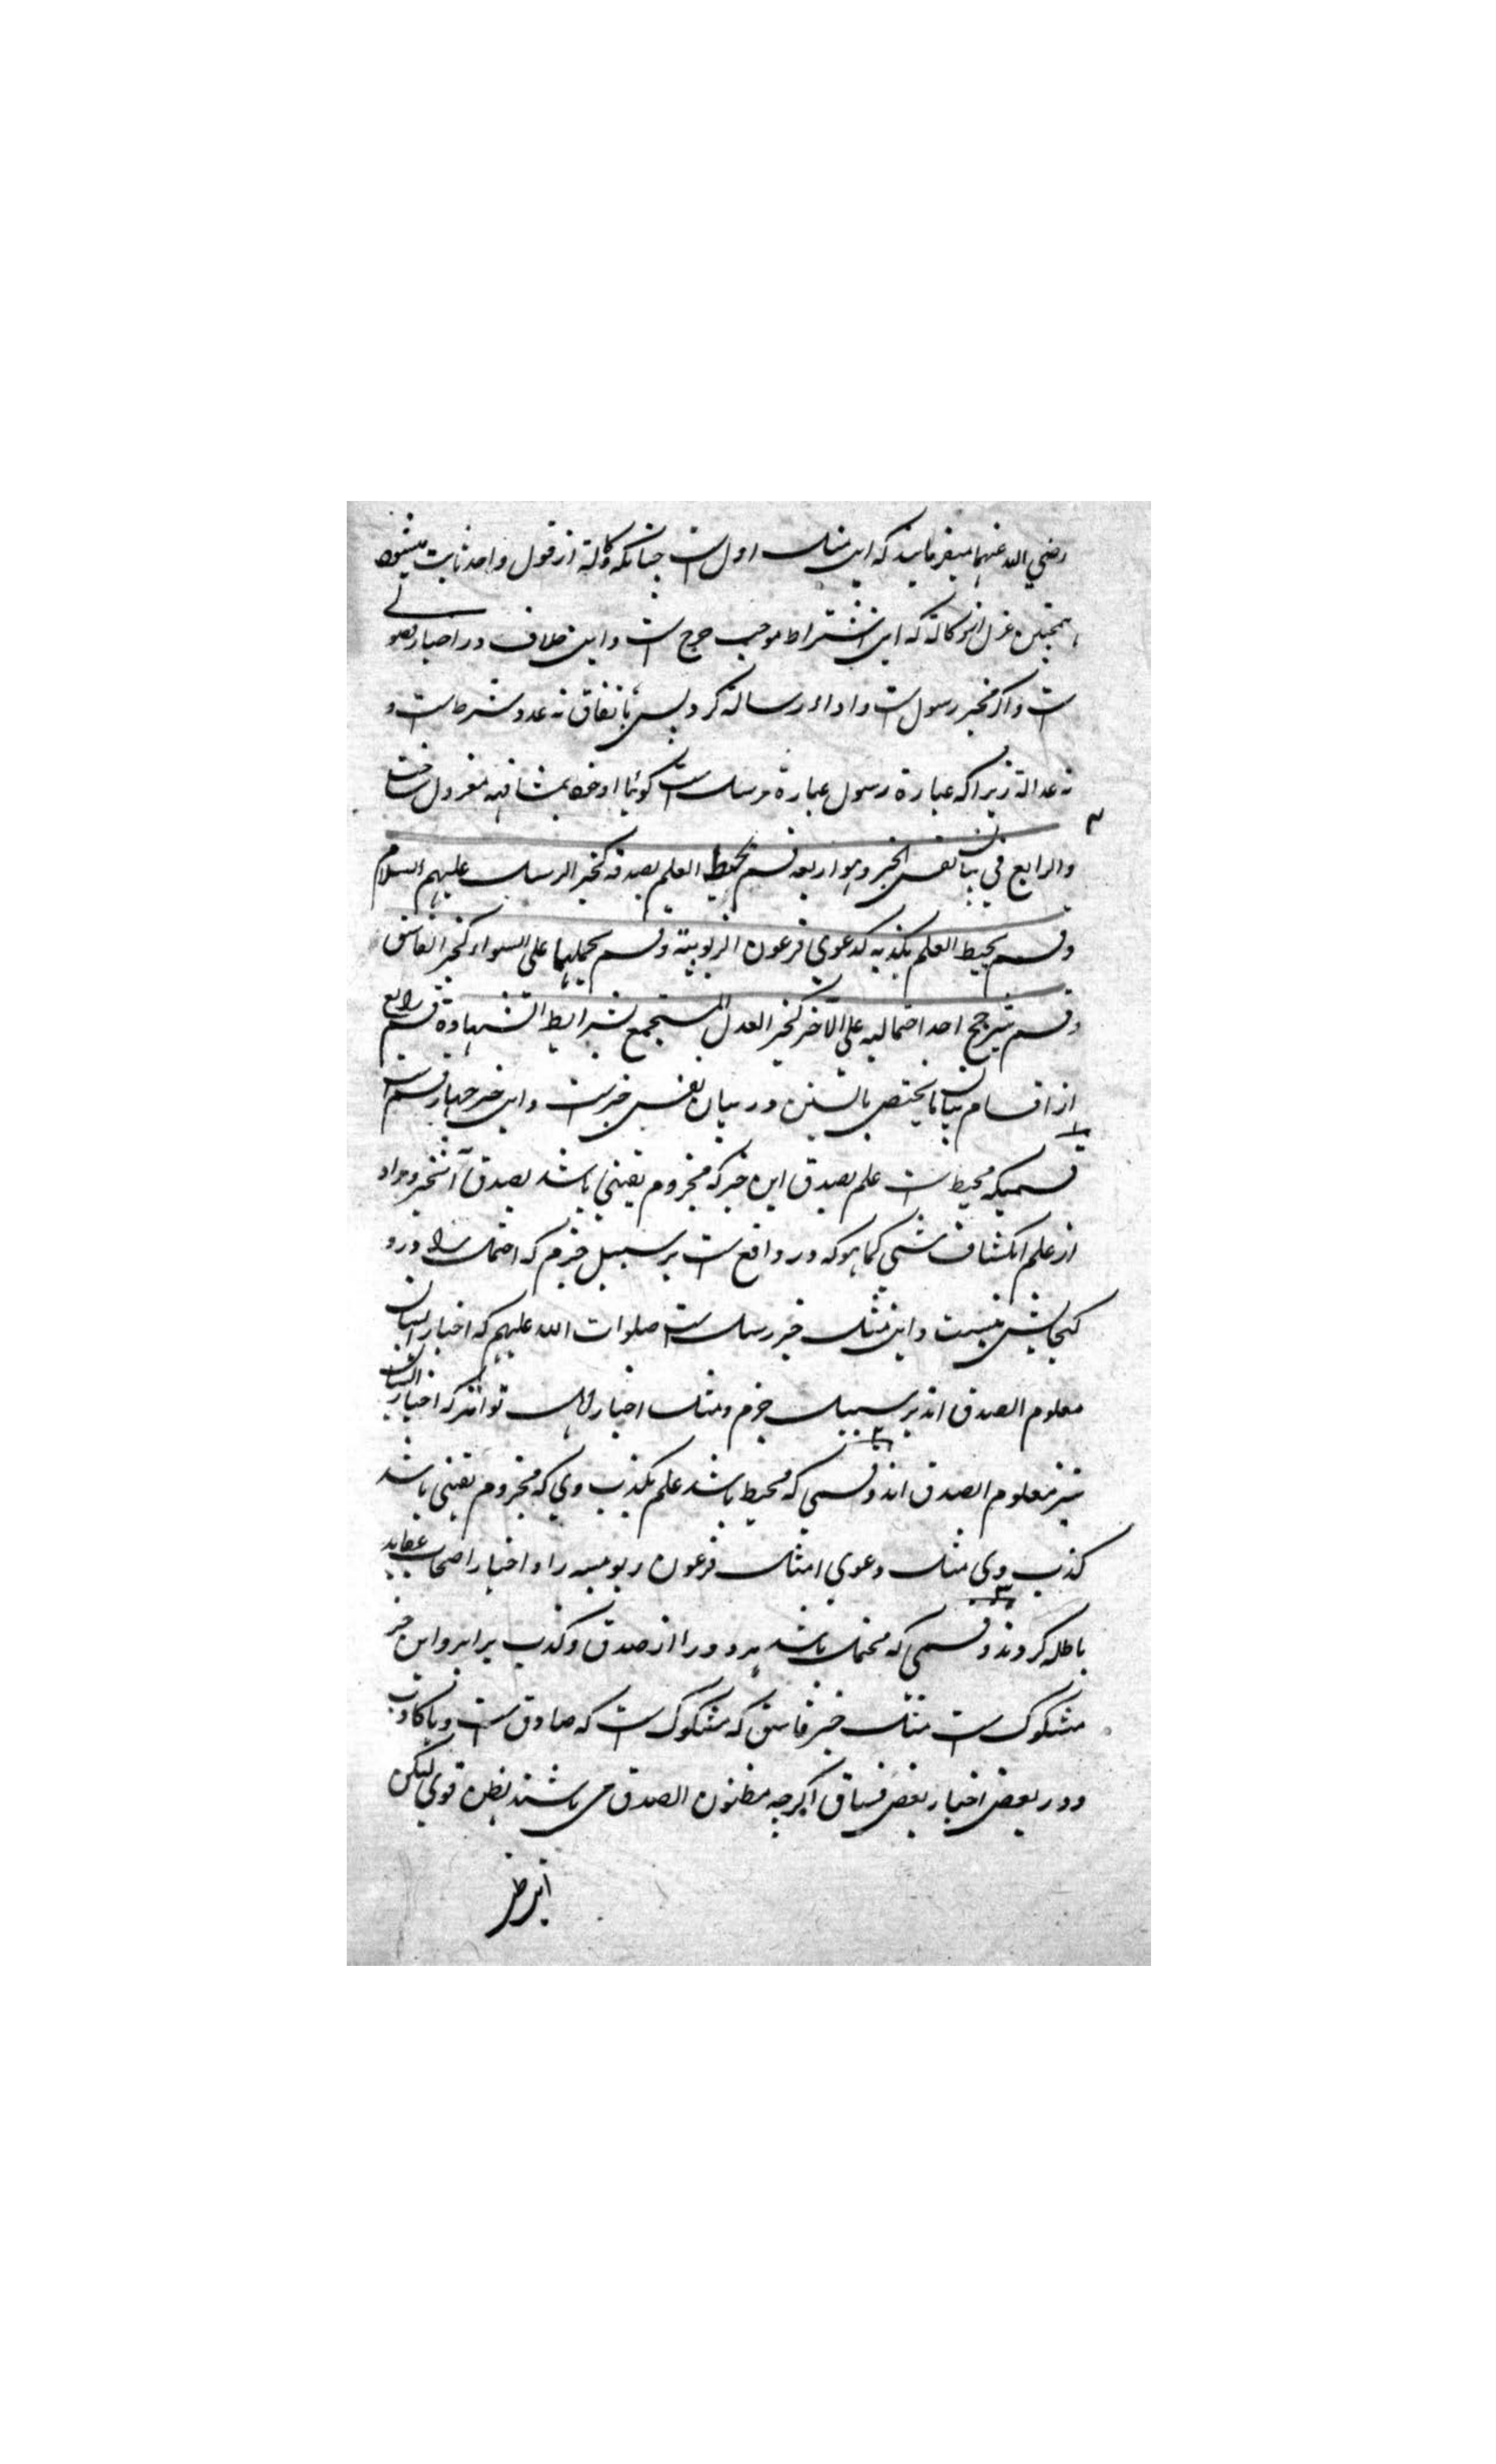 رضي الله عنهما میفرمایند که این مثل اول ست چنانکه وکالة از قول واحد ثابت میشود
همچنین عزل از وکالة که این اشتراط موجب حرج ست و این خلاف در اخبار فضولی
ست و اگر مخبر رسول ست و اداء رسالة کرد پس باتفاق نه عدد شرط ست و
نه عدالة زیرا که عبارة رسول عبارة مرسل ست گویا او خود بمشافهه معزول ساخت
والرابع في بیان نفس الخبر وهو اربعة قسم یحیط العلم بصدقه کخبر الرسل علیهم السلام
وقسم یحیط العلم بکذبه کدعوي فرعون الربوبیة وقسم یحتملهما علی السواء کخبر الفاسق
وقسم یترجح احد احتمالیه علی الآخر کخبر العدل المستجمع لشرایط الشهادة قسم رابع
از اقسام بیان ما یختص بالسنن در بیان نفس خبرست و این خبر چهار قسم ست
قسمیکه محیط ست علم بصدق این خبر که مجزوم یقیني باشد بصدق آنخبر و مراد
از علم انکشاف شیٔ کما هو که در واقع ست بر سبیل جزم که احتمال را درو
گنجایش نیست و این مثل خبر رسل ست صلوات الله علیهم که اخبار ایشان
معلوم الصدق اند بر سبیل جزم و مثل اخبار اهل تواتر که اخبار ایشان
نیز معلوم الصدق اند و قسمي که محیط باشد علم بکذب وي که مجزوم یقیني باشد
کذب وي مثل دعوي امثال فرعون ربوبیه را و اخبار اصحاب عقاید
باطله کردند و قسمي که محتمل باشد هر دو را از صدق و کذب برابر و این خبر
مشکوک ست مثل خبر فاسق که مشکوک ست که صادق ست و یا کاذب
و در بعض اخبار بعض فساق اگرچه مظنون الصدق می باشند بظن قوي لیکن
این ظن